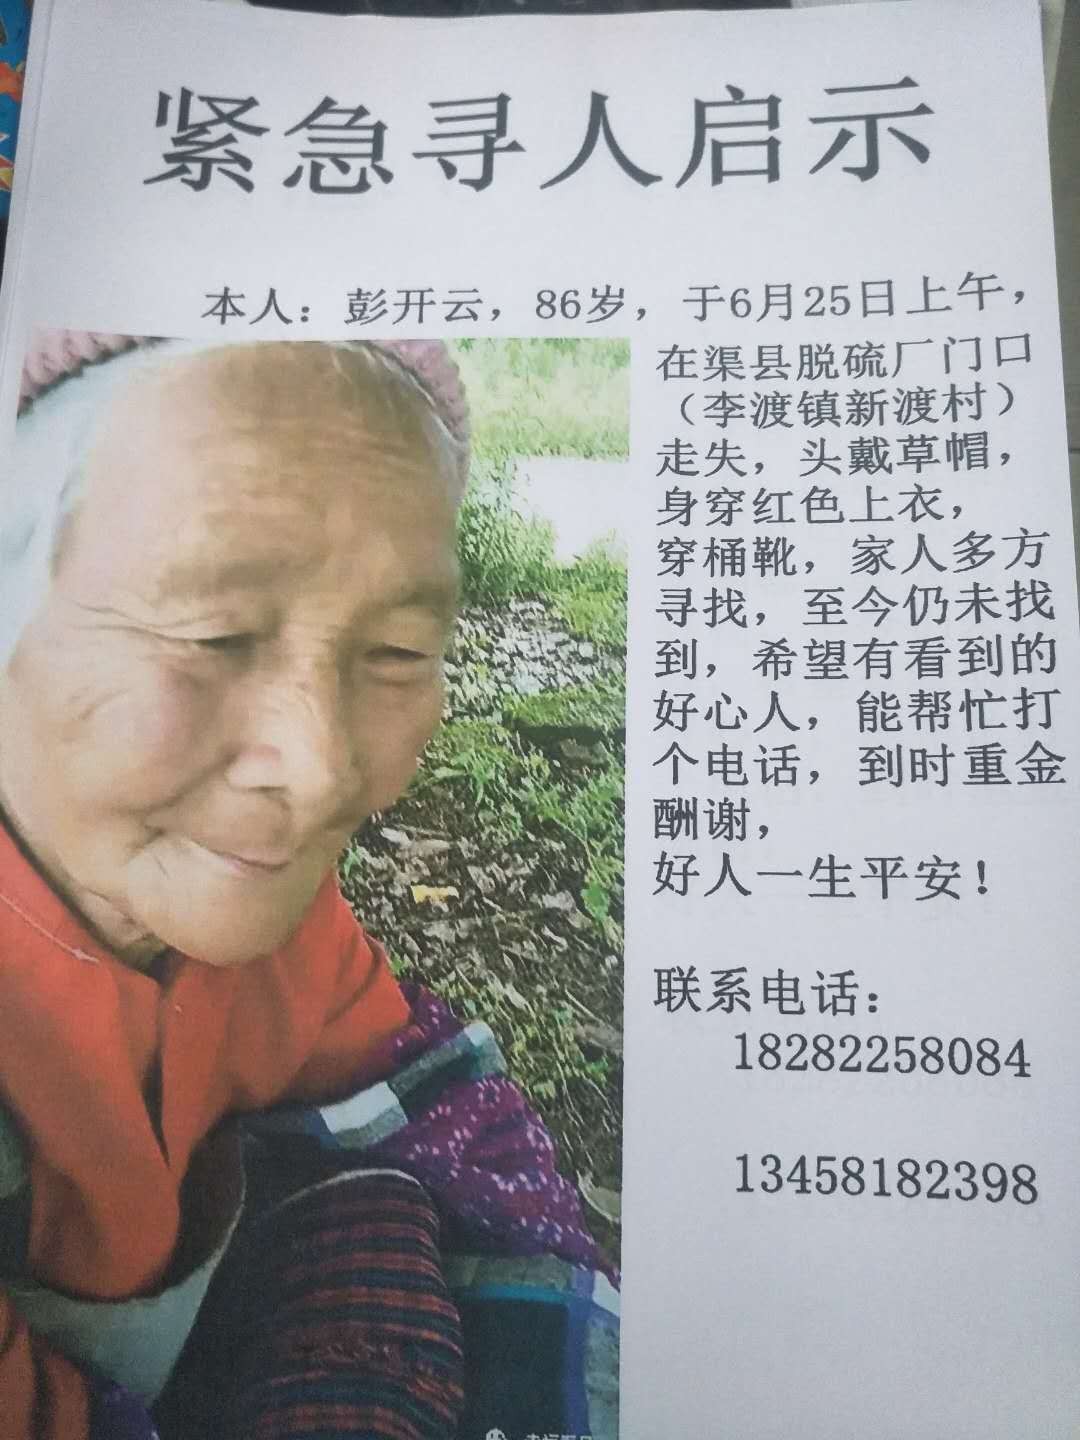 紧急寻人启示
本人：彭开云，86岁，于6月25日上午，
在渠县脱硫厂门口
（李渡镇新渡村）
走失，头戴草帽，
身穿红色上衣，
穿桶靴，家人多方
寻找，至今仍未找
到，希望有看到的
好心人，能帮忙打
个电话，到时重金
酬谢，
好人一生平安！
联系电话：
18282258084
13458182398